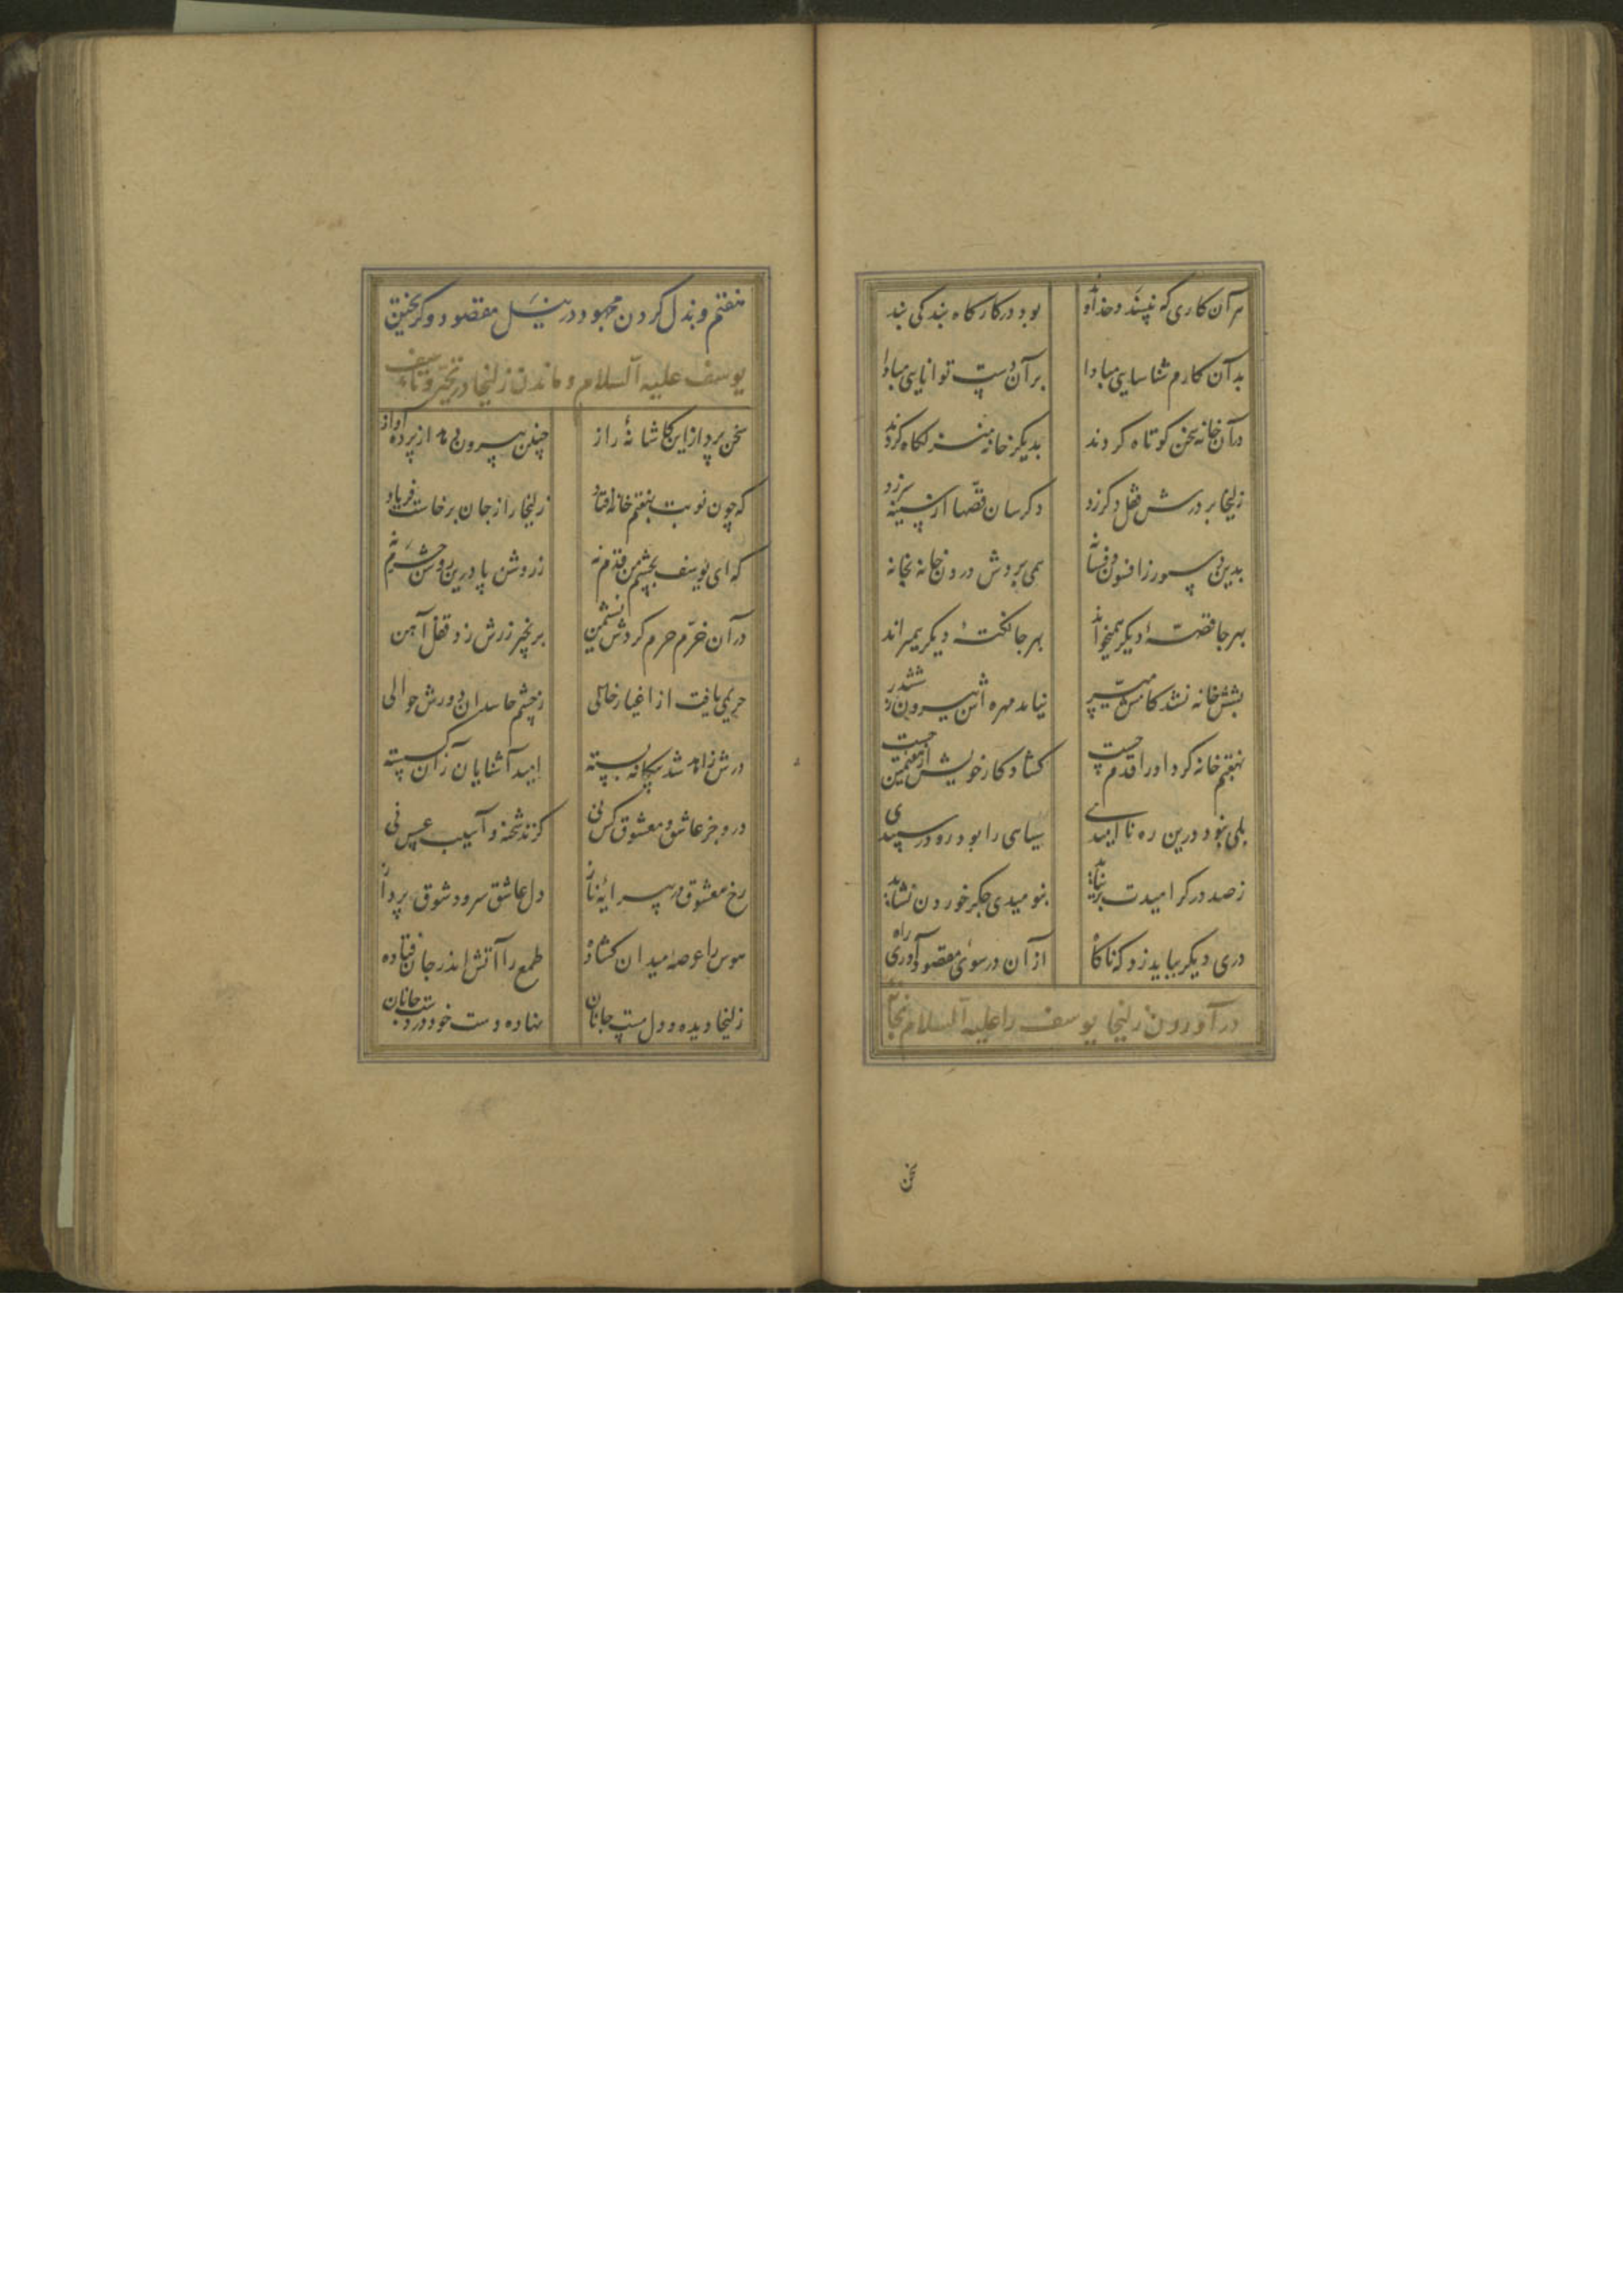 هر آن کاری که نپسندد خداوند بود در کارگاه بندگی بند
بدآن کارم شناسایی مبادا بر آن دست توانایی مبادا
در آن خانه سخن کوتاه کردند بدیگر خانه منزلگاه کردند
زلیخا بر درش قفل دگر زد دگرسان قصها از سینه سر زد
بدین دستور از افسون فسانه همی بردش درون خانه بخانه
بهر جا قصهٔ دیگر همیخواند بهر جا نکتهٔ دیگر همیراند
بشش خانه نشد کامش میسر نیامد مهره اش بیرون ز ششدر
بهفتم خانه کرد او را قدم چست گشاد کار خویش از هفتمین جست
بلی نبود درین ره ناامیدی سیاهی را بود رو در سپیدی
ز صد در گر امیدت بر نیاید بنومیدی جگر خوردن نشاید
دری دیگر بباید زد که ناگاه از آن در سوی مقصود آوری راه
در آوردن زلیخا یوسف را علیه السلام بخانهٔ
سخن
هفتم و بذل کردن مجهود در نیل مقصود و گریختن
یوسف علیه السلام و ماندن زلیخا در تحیر و تاسف
سخن پرداز این کاشانهٔ راز چنین بیرون دهد از پرده آواز
که چون نوبت بهفتم خانه افتاد زلیخا را ز جان برخاست فریاد
که ای یوسف بچشم من قدم نه ز روشن پا درین روشن حرم نه
در آن خرم حرم کردش نشیمن بزنجیر زرش زد قفل آهن
حریمی یافت از اغیار خالی ز چشم حاسدان دورش حوالی
درش ز آمد شد بیگانه بسته امید آشنایان زان گسسته
درو جز عاشق و معشوق کس نی گزند شحنه و آسیب عسس نی
رخ معشوق در پیرایهٔ ناز دل عاشق سرود شوق پرداز
هوس را عرصهٔ میدان گشاده طمع را آتش اندر جان فتاده
زلیخا دیده و دل مست جانان نهاده دست خود در دست جانان